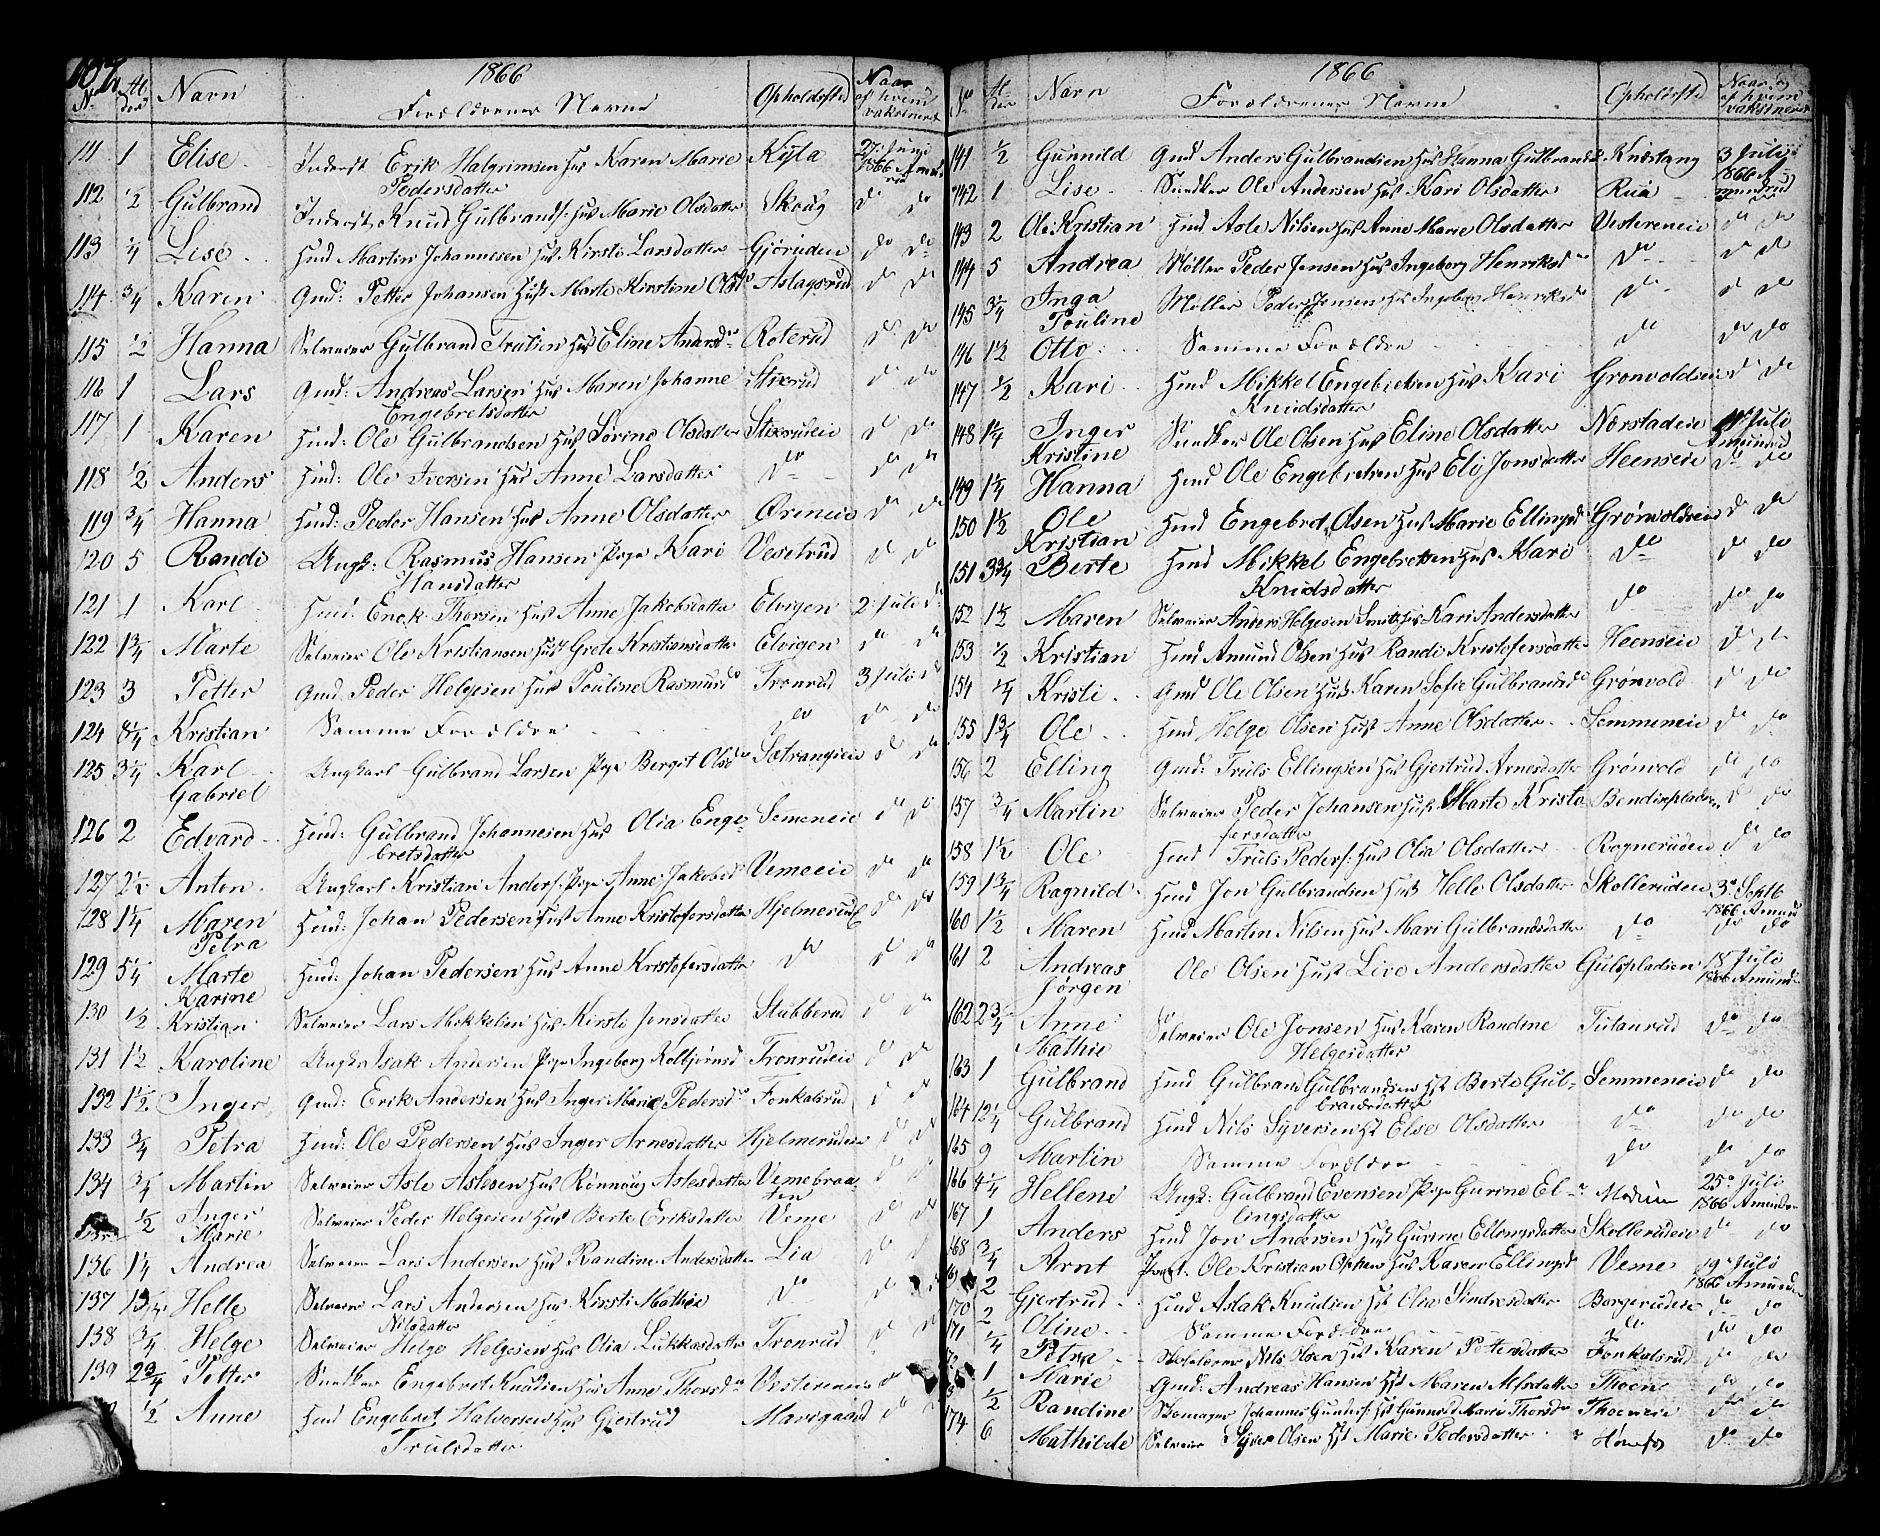 1866
No Alder Navn Forældrenes Navne Opholdssted Naar og af hvem vaksineret
111 1 Elise Inderst Erik Halgrimsen Hus Karen Marie Kysla 27 Juni
Pedersdatter 1866 Amund
112 1/2 Gulbrand Inderst Knud Gulbrands: Hus Marie Olsdatter Skoug do do
113 1/4 Lise Hmd Martin Johannesen Hus Kirsti Larsdatter Gjøruden do do
114 3/4 Karen Gmd: Petter Johansen Hus Marte Kirstine Olsdr Aslagsrud do do
115 1/2 Hanna Selveier Gulbrand Trulsen Hus Eline Andersdr Roterud do do
116 1 Lars Gmd: Andreas Larsen Hus Maren Johanne Stixrud do do
Engebretsdatter
117 1 Karen Hmd: Ole Gulbrandsen Hus Sørine Olsdatter Stixrudeie do do
118 1/2 Anders Hmd: Ole Iversen Hus Anne Larsdatter do do do
119 3/4 Hanna Hmd: Peder Hansen Hus Anne Olsdatter Øreneie do do
120 5 Randi Ungk: Rasmus Hansen Pige Kari Vesetrud do do
Hansdatter
121 1 Karl Hmd: Enck Thorsen Hus Anne Jakobsdatter Elvigen 2 Juli do
122 1 3/4 Marte Selveier Ole Kristiansen Hus Grete Kristiansdatter Elvigen do do
123 3 Petter Gmd. Peder Helgesen Hus Pouline Rasmusdr Tronrud 3 Juli do
124 8 1/4 Kristian Samme Forældre do do do
125 3 1/4 Karl Ungkarl Gulbrand Larsen Pige Bergit Olsdr Sætrangeie do do
Gabriel
126 2 Edvard Hmd: Gulbrand Johannesen Hus Olia Enge- Semeneie do do
bretsdatter
127 2 1/2 Anton Ungkarl Kristian Anders: Pige Anne Jakobsd Vemeeie do do
128 1 1/4 Maren Hmd: Johan Pedersen Hus Anne Kristofersdatter Hjelmerud do do
Petra
129 5 1/4 Marte Hmd: Johan Pedersen Hus Anne Kristofersdatter do do do
Karine
130 1/2 Kristian Selveier Lars Mikkelsen Hus Kirsti Jonsdatter Stubberud do do
131 1 1/2 Karoline Ungkr Isak Andersen Pige Ingeborg Kolbjørnsd Tronrudeie do do
132 1 1/2 Inger Gmd: Erik Andersen Hus Inger Marie Pedersdr Fonkalsrud do do
133 3/4 Petra Hmd: Ole Pedersen Hus Inger Arnesdatter Hjelmerudeie do do
134 3/4 Martin Selveier Asle Aslesen Hus Rønnoug Aslesdatter Vemebraa- do do
ten
1/2 Inger Selveier Peder Helgesen Hus Berte Eriksdatter Veme do do
Marie
136 1 1/4 Andrea Selveier Lars Andersen Hus Randine Andersdatter Lia do
137 1 3/4 Helle Selveier Lars Andersen Hus Kirsti Mathea do do do
Nilsdatter
138 3/4 Helge Selveier Helge Helgesen Hus Olia Lukkasdatter Tronrud do do
139 2 3/4 Petter Sundker Engebret Knudsen Hus Anne Thorsdr Vestereneie do
1/2 Anne Hmd Engebret Halvorsen Hus Gjertrud Marigaard do do
Trulsdatter
1866
No Alder Navn Forældrenes Navne Opholdsste Naar og af hvem vaksineret
141 1/2 Gunnild Gmd Anders Gulbrandsen Hus Hanna Gulbrandsd Knestang 3 Juli
1866 A-
mundrud
142 1 Lise Sundker Ole Andersen Hus Kari Olsdatter Rua
143 2 Ole Kristian Hmd Asle Nilsen Hus Anne Marie Olsdatter Vestereneie do do
144 5 Andrea Møller Peder Jensen Hus Ingeborg Henriksdr do do do
145 3/4 Inga Møller Peder Jensen Hus Ingeborg Henriksdr do do do
Pouline
146 1 1/2 Otto Samme Forældre do do do
147 1/2 Kari Hmd Mikkel Engebretsen Hus Kari Gronvoldseie do do
Knudsdatter
148 1 1/4 Inger Sundker Ole Olsen Hus Eline Olsdatter Norstadeie Juli
Kristine Amundrud
149 1 1/4 Hanna Hmd Ole Engebretsen Hus Eli Jonsdatter Heenseie do do
150 1 1/2 Ole Hmd Engebret Olsen Hus Marie Ellingsd Grønvoldseie do do
Kristian
151 3 3/4 Berte Hmd Mikkel Engebretsen Hus Kari do do do
Knudsdatter
152 1 1/2 Maren Selveier Anders Helgesen Smeb Hus Kari Andersdatter do do do
153 1/2 Kristian Hmd Amund Olsen Hus Randi Kristofersdatter Heenseie do do
154 1/4 Kristi Gmd Ole Olsen Hus Karen Sofie Gulbrandsdr Grønvold do do
155 1 3/4 Ole Hmd Helge Olsen Hus Anne Olsdatter Semmeneie do do
156 2 Elling Gmd: Truls Ellingsen Hus Gjertrud Arnesdatter Grønvold do do
157 3/4 Martin Selveier Peder Johansen Hus Marte Kristo Bendixpladsen do do
fersdatter
158 1 1/2 Ole Hmd Truls Peders: Hus Olia Olsdatter Rogneruden do do
159 1 3/4 Ragnild Hmd Jon Gulbrandsen Hus Helle Olsdatter Skolleruden 3 Sept
1866 Amund
160 1 1/2 Maren Hmd Martin Nilsen Hus Mari Gulbrandsdatter do do do
161 2 Andreas Ole Olsen Hus Live Andersdatter Gulspladsen 18 Juli
Jørgen 1866 Amund
162 2 3/4 Anne Selveier Ole Jonsen Hus Karen Randine Tutanrud do do
Mathie Helgesdatter
163 1 Gulbrand Hmd Gulbrand Gulbrandsen Hst Berte Gul- Semmeneie do do
brandsdatter
164 12 1/4 Gulbrand Hmd Nils Syversen Hst Else Olsdatter do do do
165 9 Martin Samme Forældre do do do
166 4 1/4 Hellene Ungk: Gulbrand Evensen Pige Gurine El- Modum 25 Juli
lingsdatter 1866 Amunds
167 1 Anders Hmd Jon Andersen Hus Gurine Ellingsdatter Skollerudeie do do
168 3/4 Arnt Ole Kristian Hus Karen Ellingsd Veme 19 Juli
1866 Amunds
2 Gjertrud Hmd Aslak Knudsen Hst Olia Sindresdatter Borgerudeie do do
170 2 Oline Samme Forældre do do do
171 1/4 Petra Skolelærer Nils Olsen Hst Karen Pettersdatter Fonkalsrud do do
1 Marie Gmd: Andreas Hansen Hst Maren Alfsdatter Thoen do do
1/2 Randine Skomager Johannes Gunders: Hst Gunnild Marie Thorsdr Thoeneie do do
174 6 Mathilde Selveier Syver Olsen Hst Marie Pedersdatter Hønefos do do